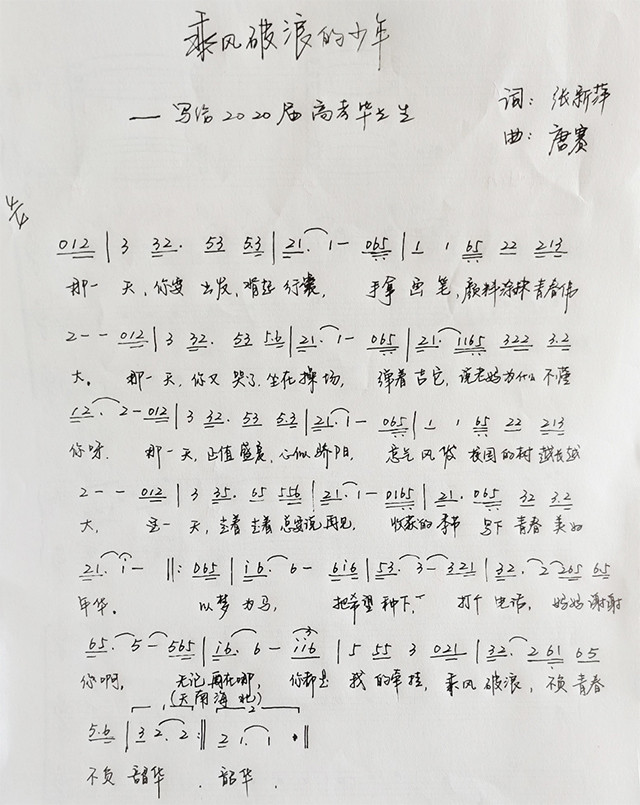 乘风破浪的少年
—写给2020届高考毕业生
词：张新萍
曲：唐赛
4/4
012 | 3 32. 53 53 | 21. 1- 065 | 1 1 65 22 213
那一天，你要出发，背起行囊， 手拿画笔，颜料涂抹青春伟
2-- 012 | 3 32. 53 56 | 21. 1- 065 | 21. 1165 322 3.2
大。 那一天，你又哭了，坐在操场， 弹着吉它，说老妈为什么不懂
12. 2-012 | 3 32. 53 53 | 21. 1- 065 | 1 1 65 22 213
你呀. 那一天，正值盛夏，心似骄阳， 意气风发 校园的树越长越
2-- 012 | 3 35. 65 556 | 21. 1-0165 | 21. 065 32 3.2
大， 这一天，走着走着总要说再见， 收获的季节 写下青春美好
21. 1- ‖: 065 | i6. 6- 6i6 | 53. 3-321 | 32. 2265 65
年华。 以梦为马， 把希望种下， 打个电话， 妈妈谢谢
65. 5-565 | i6. 6- ii6 | 5 55 3 021 | 32. 261 65
你啊， 无论再在哪， 你都是我的牵挂，乘风破浪，不负青春
(天南海北)
1 2
5.6 | 32. 2 :‖ 21. 1 ·‖
不负韶华 . 韶华.